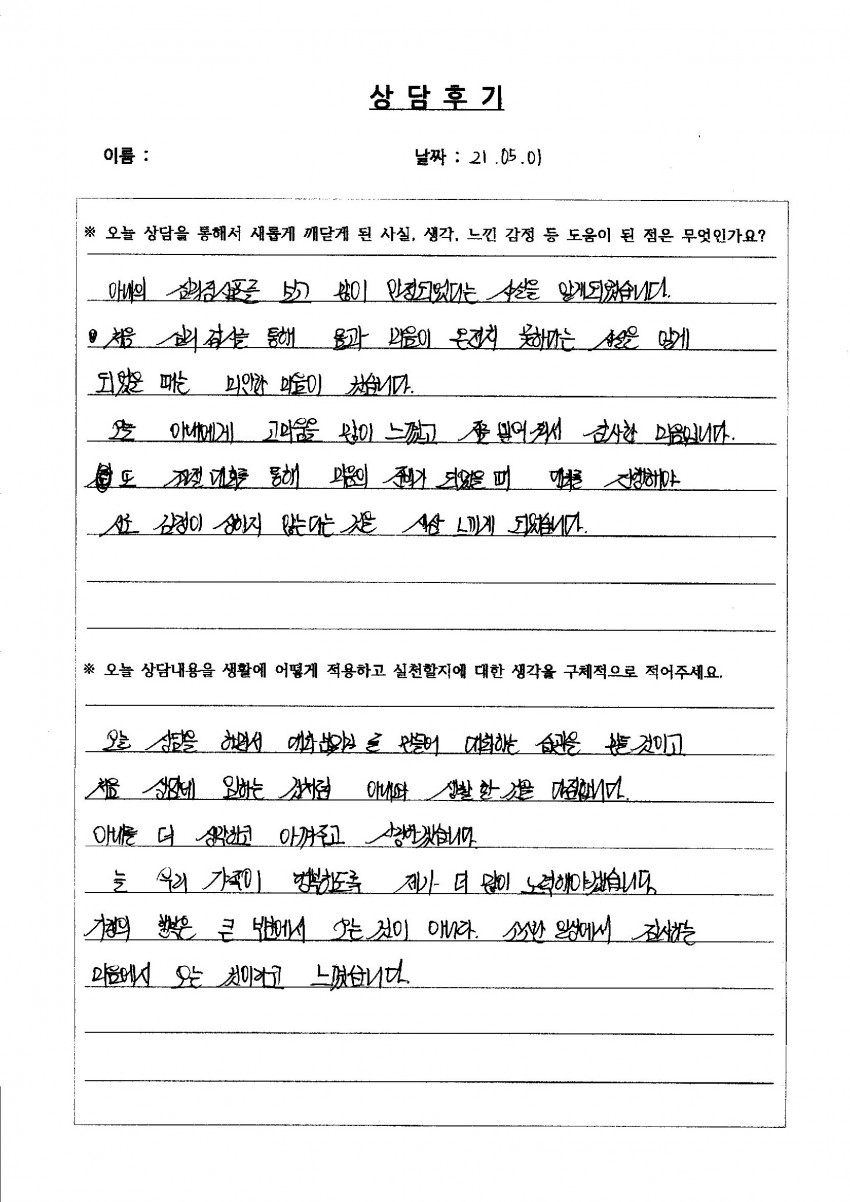 상 담 후 기
이름 :
날짜 : 21.05.01
※ 오늘 상담을 통해서 새롭게 깨닫게 된 사실, 생각, 느낀 감정 등 도움이 된 점은 무엇인가요?
아내의 심리검사표를 보고 많이 안정되었다는 사실을 알게되었습니다.
처음 심리 검사를 통해 몸과 마음이 온전치 못하다는 사실은 알게
되었을 때는 미안한 마음이 컸습니다.
오늘 아내에게 고마움을 많이 느꼈고 잘 믿어 줘서 감사한 마음입니다.
또 대화를 통해 마음의 준비가 되었을 때 대화를 진행해야
서로 감정이 상하지 않는다는 것을 새삼 느끼게 되었습니다.
※ 오늘 상담내용을 생활에 어떻게 적용하고 실천할지에 대한 생각을 구체적으로 적어주세요.
오늘 상담을 하면서 대화 를 만들어 대화하는 습관을 만들 것이고
처음 상담에 임하는 것처럼 아내와 생활 할 것을 다짐합니다.
아내를 더 생각하고 아껴주고 사랑하겠습니다.
늘 우리 가족이 행복하도록 제가 더 많이 노력해야겠습니다.
가정의 행복은 큰 부분에서 오는 것이 아니라. 소소한 일상에서 감사하는
마음에서 오는 것이라고 느꼈습니다.